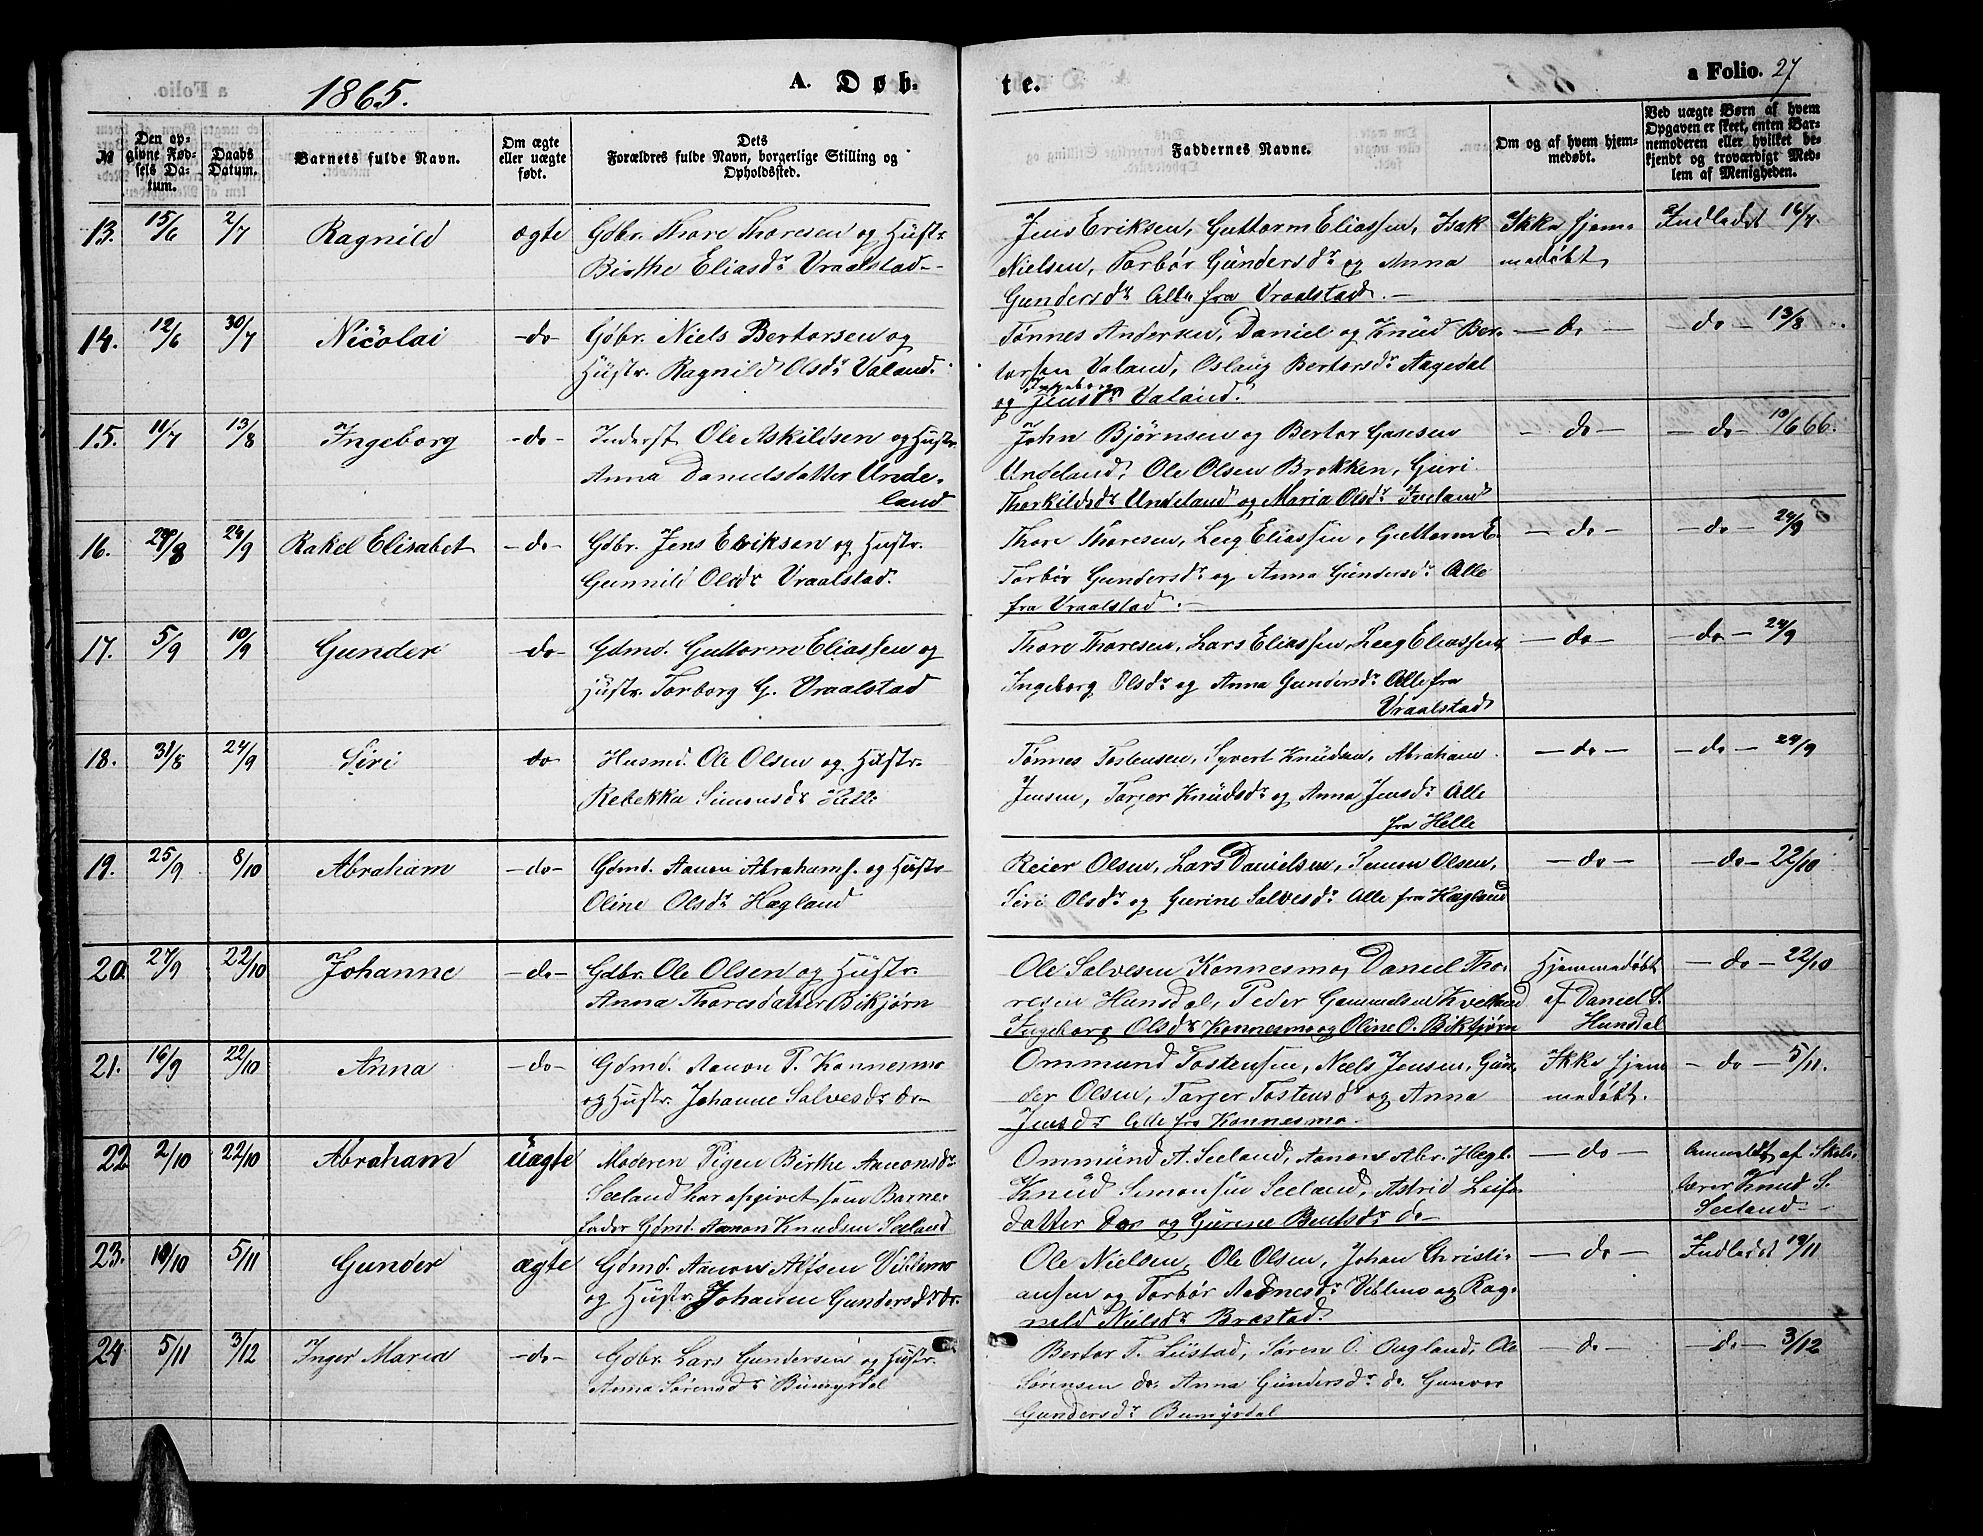 1865.
A. Døb-
te.
a Folio. 27
№
Den op-
givne Fød-
sels Da-
tum.
Daabs
Datum.
Barnets fulde Navn.
Om ægte
eller uægte
født.
Dets
Forældres fulde Navn, borgerlige Stilling og
Opholdssted.
Faddernes Navne.
Om og af hvem hjem-
medøbt.
Ved uægte Børn af hvem
Opgaven er skeet, enten Bar-
nemoderen eller hvilket be-
kjendt og troværdigt Med-
lem af Menigheden.
13. 15/6 2/7 Ragnild ægte Gdbr. Thore Thoresen og Hustr.
Birthe Eliasdr Vraalstad
Jens Eriksen, Guttorm Eliassen, Isak
Nielsen, Torbør Gundersdr og Anna
Gundersdr Alle fra Vraalstad.
Ikke hjem-
medøbt
Indladet 16/7.
14. 12/6 30/7 Nicolai -do- Gdbr. Niels Bertorsen og
Hustr. Ragnild Olsdr Valand.
Tønnes Andersen, Daniel og Knud Ber-
torsen Valand, Oslaug Bertorsdr Aagedal
og Ingeborg Jensdr Valand.
-do-
-do- 13/8
15. 11/7 13/8 Ingeborg -do- Inderst Ole Askildsen og Hustr.
Anna Danielsdatter Unde-
land
John Bjørnsen og Bertor Gasesen
Undeland, Ole Olsen Brokken, Guri
Thorkildsdr Undeland og Maria Olsdr Ireland
-do-
-do- 10/6 66.
16. 29/8 24/9 Rakel Elisabet -do- Gdbr. Jens Eriksen og Hustr.
Gunnild Olsdr Vraalstad.
Thore Thoresen, Leeg Eliassen, Guttorm E.
Torbør Gundersdr og Anna Gundersdr Alle
fra Vraalstad.
-do-
-do- 24/9
17. 5/9 10/9 Gunder -do- Gdmd. Guttorm Eliassen og
Hustr. Torborg G. Vraalstad
Thore Thoresen, Lars Eliassen, Leeg Eliassen,
Ingeborg Olsdr og Anna Gundersdr Alle fra
Vraalstad
-do-
-do- 24/9
18. 31/8 24/9 Siri do Husmd. Ole Olsen og Hustr.
Rebekka Simonsdr Helle
Tønnes Tostensen, Syvert Knudsen, Abraham
Jensen, Tarjer Knudsdr og Anna Jensdr Alle
fra Helle
-do-
-do- 24/9
19. 25/9 8/10 Abraham -do- Gdmd. Aanon Abrahams. og Hustr
Oline Olsdr Hægland
Reier Olsen, Lars Danielsen, Simon Olsen,
Siri Olsdr og Gurine Salvesdr Alle fra Hægland
-do-
-do- 22/10
20. 27/9 22/10 Johanne -do- Gdbr. Ole Olsen og Hustr.
Anna Thoresdatter Bikjørn
Ole Salvesen Konnesmo, Daniel Tho-
resen Hunsdal, Peder Gammelsen Kvelland
Ingeborg Olsdr Konnesmo og Oline O. Bikjørn
Hjemmedøbt
af Daniel T.
Hunsdal
-do- 22/10
21. 16/9 22/10 Anna -do- Gdmd. Aanon T. Konnesmo
og Hustr. Johanne Salvesdr do
Ommund Tostensen, Niels Jensen, Gun-
der Olsen, Tarjer Tostensdr og Anna
Jensdr Alle fra Konnesmo
Ikke hjem
medøbt.
-do- 5/11.
22 2/10 22/10 Abraham uægte Moderen Pigen Birthe Aanonsdr
Seeland har opgivet som Barne-
fader Gdmd. Aanon Knudsen Seeland
Ommund A. Seeland, Aanon Abr. Hægl.
Knud Simonsen Seeland, Astrid Leifs-
datter do og Gurine Bentsdr do
-do-
Anmeldt af Skole-
lærer Knud S.
Seeland
23. 10/10 5/11 Gunder ægte Gdmd. Aanon Alfsen Viblemo
og Hustr. Johanne Gundersdr do.
Ole Nielsen, Ole Olsen, Johan Christi-
ansen og Torbør Aadnesdr Viblemo og Rag-
nild Nielsdr Bræstad
-do-
Indladet 19/11
24 5/11 3/12 Inger Maria -do- Gdbr. Lars Gundersen og Hustr.
Anna Sørensdr Bumyrdal
Bertor T. Liestad, Søren O. Augland, Ole
Sørensen do. Anna Gundersdr do. Gunvor
Gundersdr Bumyrdal
-do-
-do- 3/12